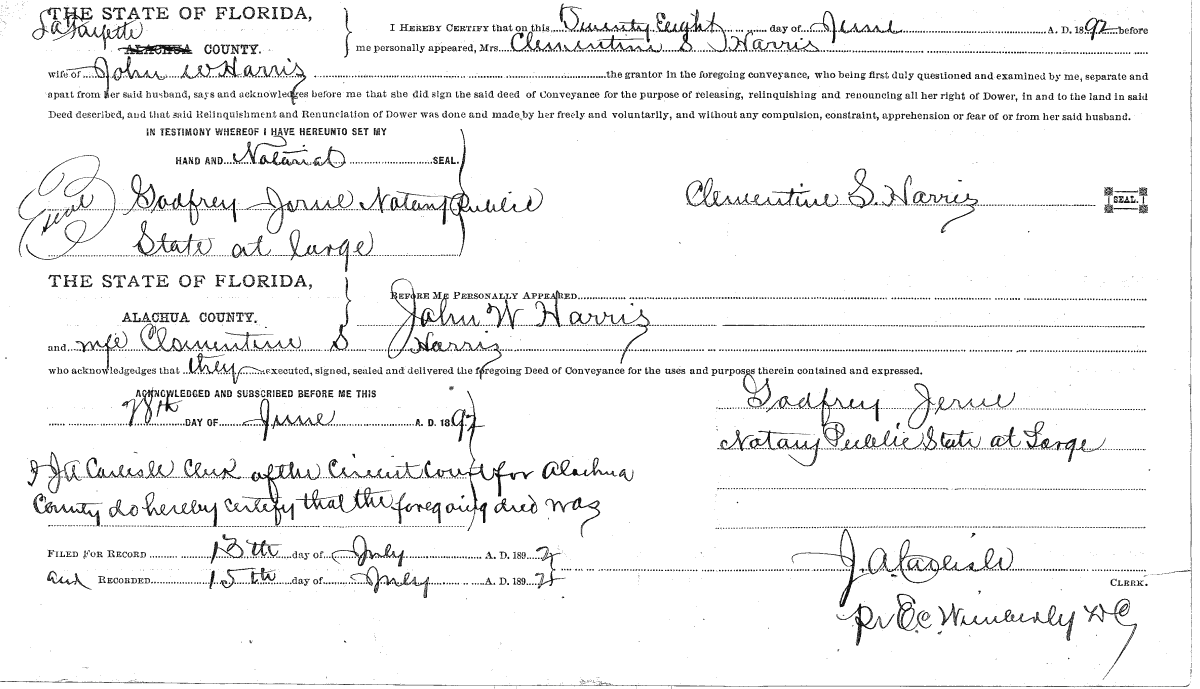 THE STATE OF FLORIDA,
LaFayette
ALACHUA COUNTY.
I HEREBY CERTIFY that on this Twenty Eight day of June A. D. 1892 before
me personally appeared, Mrs. Clementine S Harris
wife of John W Harris the grantor in the foregoing conveyance, who being first duly questioned and examined by me, separate and
apart from her said husband, says and acknowledges before me that she did sign the said deed of Conveyance for the purpose of releasing, relinquishing and renouncing all her right of Dower, in and to the land in said
Deed described, and that said Relinquishment and Renunciation of Dower was done and made by her freely and voluntarily, and without any compulsion, constraint, apprehension or fear of or from her said husband.
IN TESTIMONY WHEREOF I HAVE HEREUNTO SET MY
HAND AND Notarial SEAL.
Seal Godfrey Notary Public
State at large
Clementine S. Harris SEAL.
THE STATE OF FLORIDA,
ALACHUA COUNTY.
BEFORE ME PERSONALLY APPEARED
John W Harris
and wife Clementine S Harris
who acknowledges that they executed, signed, sealed and delivered the foregoing Deed of Conveyance for the uses and purposes therein contained and expressed.
ACKNOWLEDGED AND SUBSCRIBED BEFORE ME THIS
28th DAY OF June A. D. 1892
Godfrey
Notary Public State at Large
I J A Carlisle Clerk of the Circuit Court for Alachua
County do hereby certify that the foregoing deed was
FILED FOR RECORD 13th day of July A. D. 1892
and RECORDED 15th day of July A. D. 1892
J. A. Carlisle
CLERK.
Pr E. C. Wimberly DC